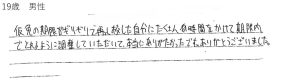 19歳　男性
仮免の期限がギリギリで再入校した自分にたくさんの時間をかけて期限内
でとれるように調整していただいて、本当にありがたかったです。ありがとうございました。